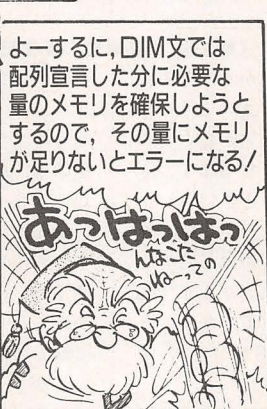 よーするに，DIM文では
配列宣言した分に必要な
量のメモリを確保しようと
するので，その量にメモリ
が足りないとエラーになる！
あっはっはっ
んなこた
ねーっての